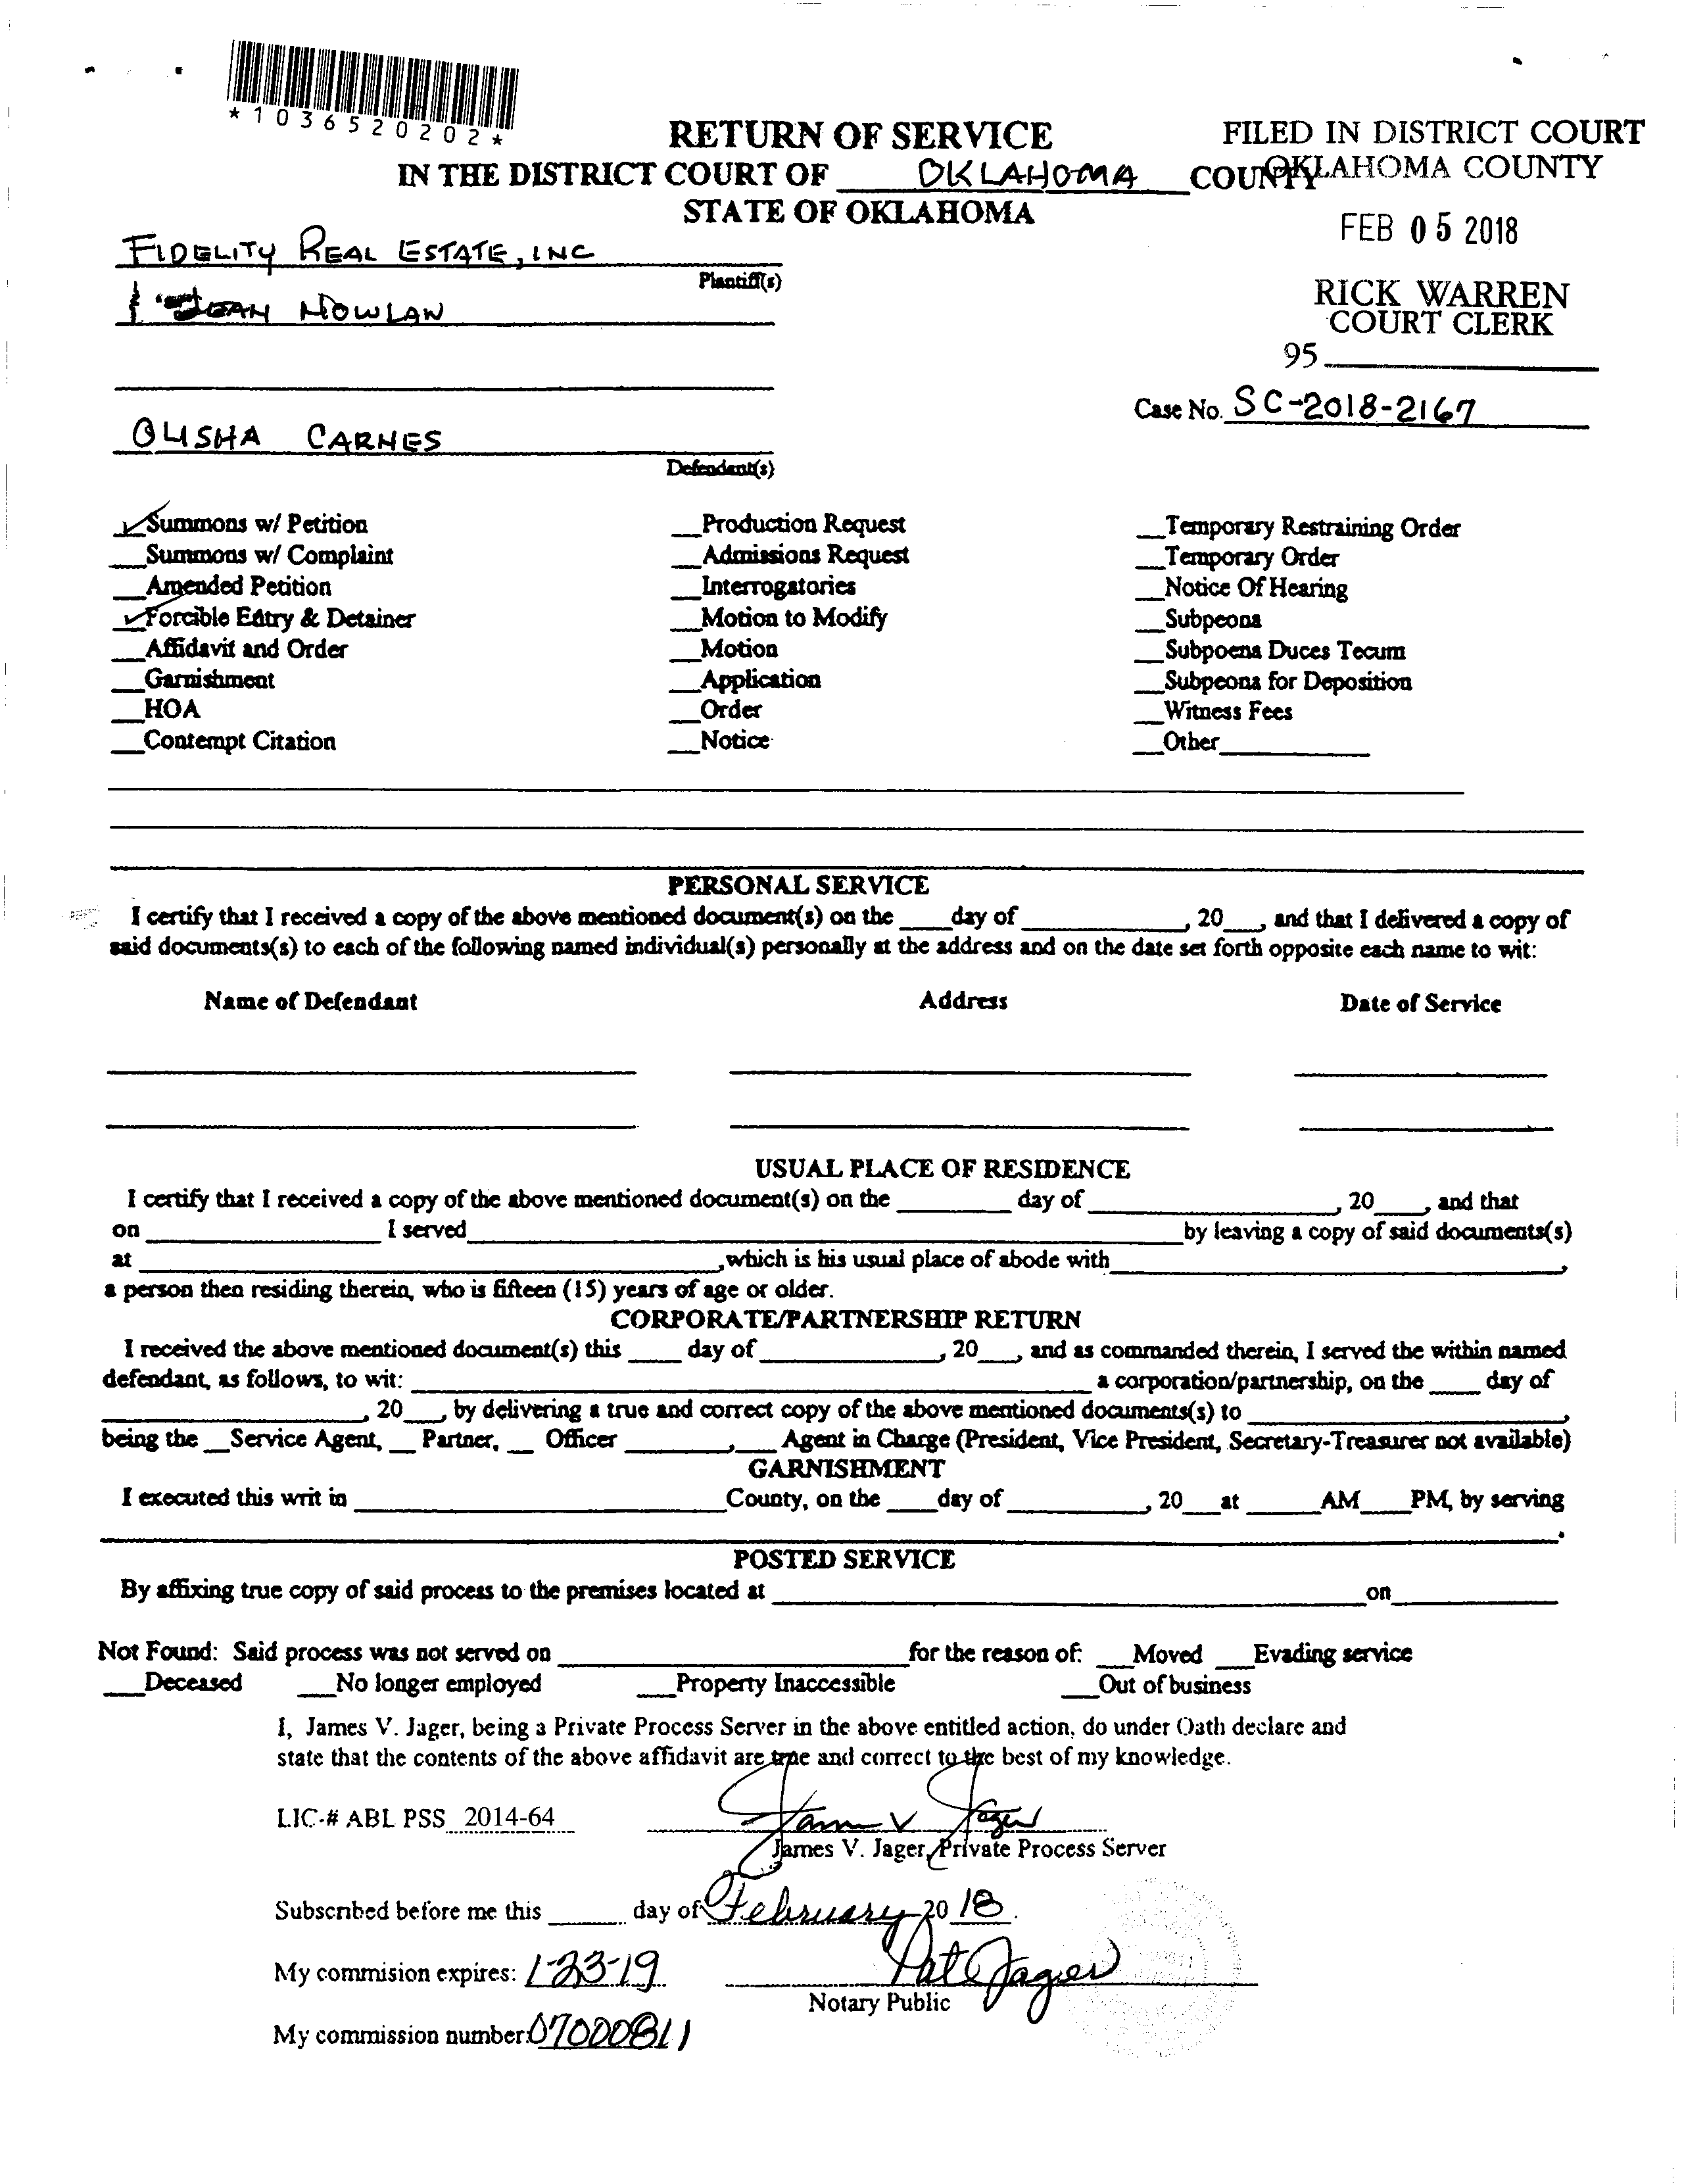 *1036520202*
RETURN OF SERVICE
FILED IN DISTRICT COURT
OKLAHOMA COUNTY
IN THE DISTRICT COURT OF OKLAHOMA COUNTY
STATE OF OKLAHOMA
FEB 05 2018
FIDELITY REAL ESTATE, INC
Plantiff(s)
& JEAN NOWLAN
RICK WARREN
COURT CLERK
95
Case No. SC-2018-2167
CARNES
Defendant(s)
✓Summons w/ Petition __Production Request __Temporary Restraining Order
__Summons w/ Complaint __Admissions Request __Temporary Order
__Amended Petition __Interrogatories __Notice Of Hearing
✓Forcible Entry & Detainer __Motion to Modify __Subpeona
__Affidavit and Order __Motion __Subpoena Duces Tecum
__Garnishment __Application __Subpeona for Deposition
__HOA __Order __Witness Fees
__Contempt Citation __Notice __Other____
PERSONAL SERVICE
I certify that I received a copy of the above mentioned document(s) on the ____day of ____, 20___, and that I delivered a copy of
said documents(s) to each of the following named individual(s) personally at the address and on the date set forth opposite each name to wit:
Name of Defendant Address Date of Service
USUAL PLACE OF RESIDENCE
I certify that I received a copy of the above mentioned document(s) on the ____ day of ____, 20____, and that
on ____ I served____by leaving a copy of said documents(s)
at ____,which is his usual place of abode with____,
a person then residing therein, who is fifteen (15) years of age or older.
CORPORATE/PARTNERSHIP RETURN
I received the above mentioned document(s) this ____ day of ____, 20___, and as commanded therein, I served the within named
defendant, as follows, to wit: ____ a corporation/partnership, on the ____ day of
____, 20___, by delivering a true and correct copy of the above mentioned documents(s) to ____,
being the __Service Agent, __ Partner, __ Officer ____,___ Agent in Charge (President, Vice President, Secretary-Treasurer not available)
GARNISHMENT
I executed this writ in ____County, on the ____day of____, 20___at ____AM____PM, by serving
____.
POSTED SERVICE
By affixing true copy of said process to the premises located at ____on____
Not Found: Said process was not served on ____for the reason of: ___Moved ___Evading service
___Deceased ___No longer employed ___Property Inaccessible ___Out of business
I, James V. Jager, being a Private Process Server in the above entitled action, do under Oath declare and
state that the contents of the above affidavit are true and correct to the best of my knowledge.
LIC-# ABL PSS 2014-64 James V Jager
James V. Jager, Private Process Server
Subscribed before me this ____ day of February 20 18.
My commision expires: 1-23-19 Pat Jager
Notary Public
My commission number:07000811